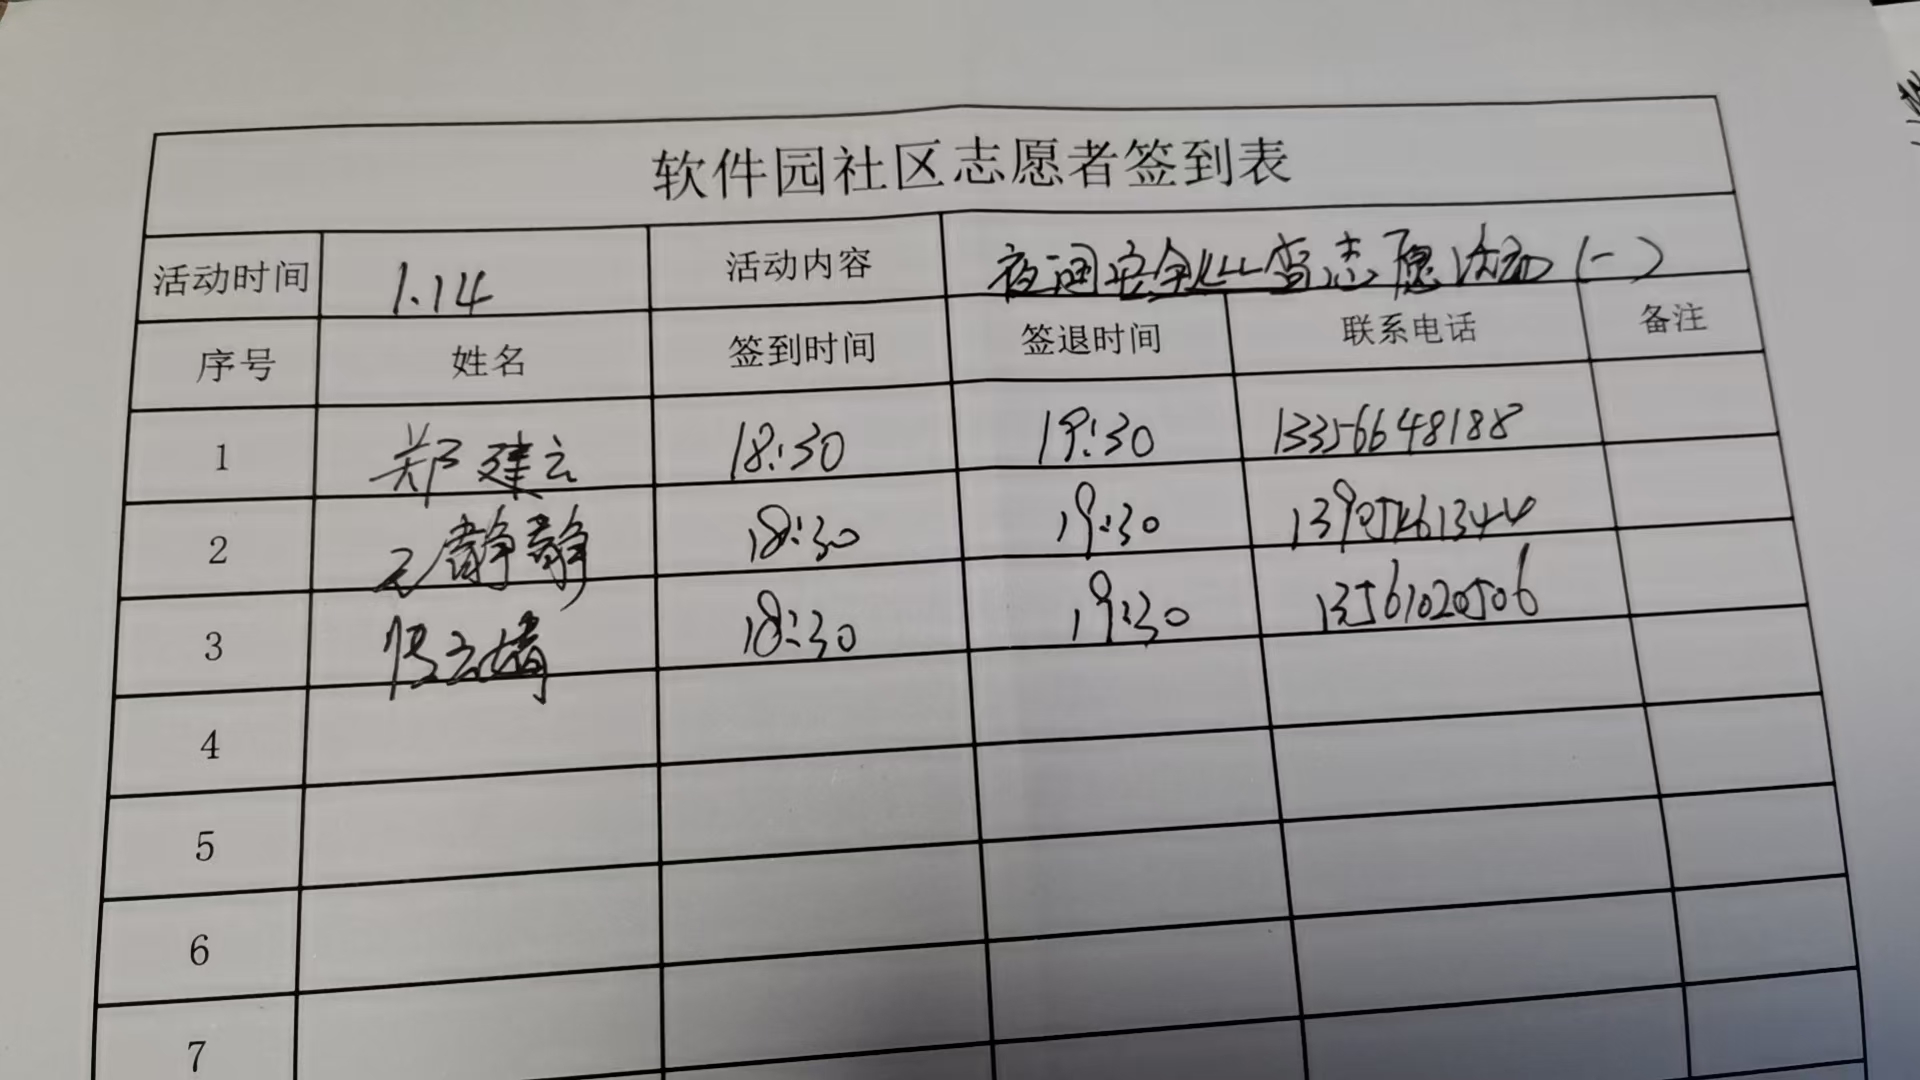 软件园社区志愿者签到表
活动时间 1.14 活动内容 夜间安全巡查志愿活动(一)
序号 姓名 签到时间 签退时间 联系电话 备注
1 郑建云 18:30 19:30 13356648188
2 静静 18:30 19:30 13905461344
3 18:30 19:30 13561020506
4
5
6
7